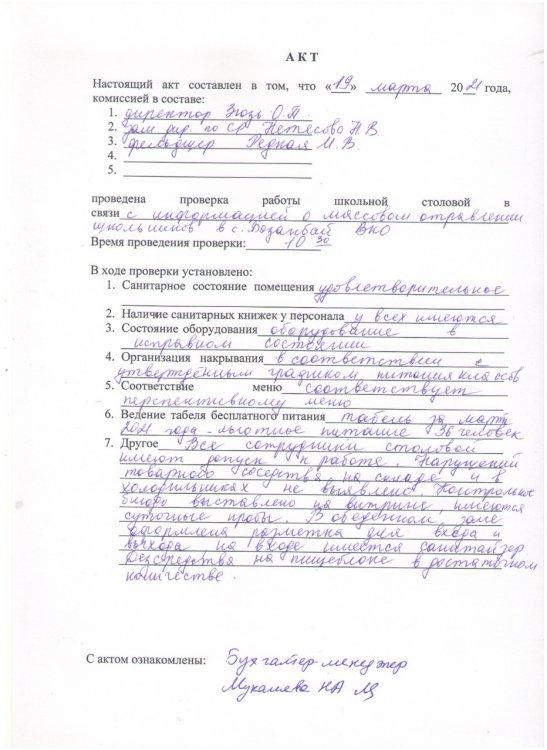 АКТ
Настоящий акт составлен в том, что «19» марта 2021 года,
комиссией в составе:
1. директор Згозь О.П.
2. зам дир. по СР Нетесова Н.В.
3. фельдшер Редкая И.В.
4.
5.
проведена проверка работы школьной столовой в
связи с информацией о массовом отравлении
школьников в с. Бозанбай ВКО
Время проведения проверки: 10 30
В ходе проверки установлено:
1. Санитарное состояние помещения удовлетворительное
2. Наличие санитарных книжек у персонала у всех имеются
3. Состояние оборудования оборудование в
исправном состоянии
4. Организация накрывания в соответствии с
утвержденным графиком питания
5. Соответствие меню соответствует
перспективному меню
6. Ведение табеля бесплатного питания табель за март
2021 года - льготное питание 36 человек
7. Другое Все сотрудники столовой
имеют допуск к работе. Нарушений
товарного соседства на складе и в
холодильниках не выявлено. Контрольное
блюдо выставлено на витрине, имеются
суточные пробы. В обеденном зале
оформлена разметка для входа и
выхода на входе имеется санитайзер
Дезсредства на пищеблоке в достаточном
количестве.
С актом ознакомлены: Бухгалтер-менеджер
Мукашева НА